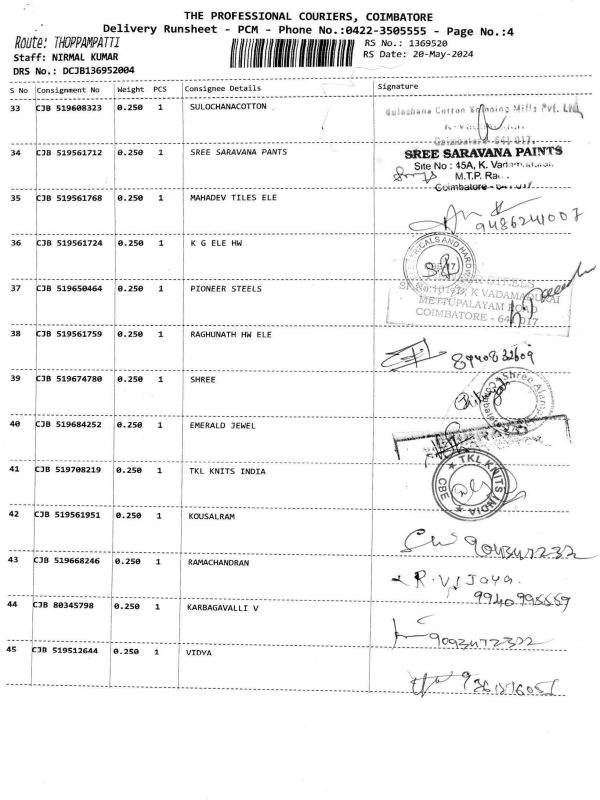 THE PROFESSIONAL COURIERS, COIMBATORE
Delivery Runsheet - PCM - Phone No.:0422-3505555 - Page No.:4
Route: THOPPAMPATTI
RS No.: 1369520
Staff: NIRMAL KUMAR
RS Date: 20-May-2024
DRS No.: DCJB136952004
S No Consignment No Weight PCS Consignee Details Signature
33 CJB 519608323 0.250 1 SULOCHANACOTTON
Sulochana Cotton Spinning Mills Pvt. Ltd.
Coimbatore - 641 017.
34 CJB 519561712 0.250 1 SREE SARAVANA PANTS
SREE SARAVANA PAINTS
Site No : 45A, K.
M.T.P.
Coimbatore
35 CJB 519561768 0.250 1 MAHADEV TILES ELE
9486241007
36 CJB 519561724 0.250 1 K G ELE HW
37 CJB 519650464 0.250 1 PIONEER STEELS
STEELS
K VADAMADURAI
METTUPALAYAM ROAD
COIMBATORE - 641 017
38 CJB 519561759 0.250 1 RAGHUNATH HW ELE
8940832609
39 CJB 519674780 0.250 1 SHREE
Shree
40 CJB 519684252 0.250 1 EMERALD JEWEL
41 CJB 519708219 0.250 1 TKL KNITS INDIA
TKL KNITS INDIA
CBE
42 CJB 519561951 0.250 1 KOUSALRAM
43 CJB 519668246 0.250 1 RAMACHANDRAN
R. Vijaya.
44 CJB 80345798 0.250 1 KARBAGAVALLI V
45 CJB 519512644 0.250 1 VIDYA